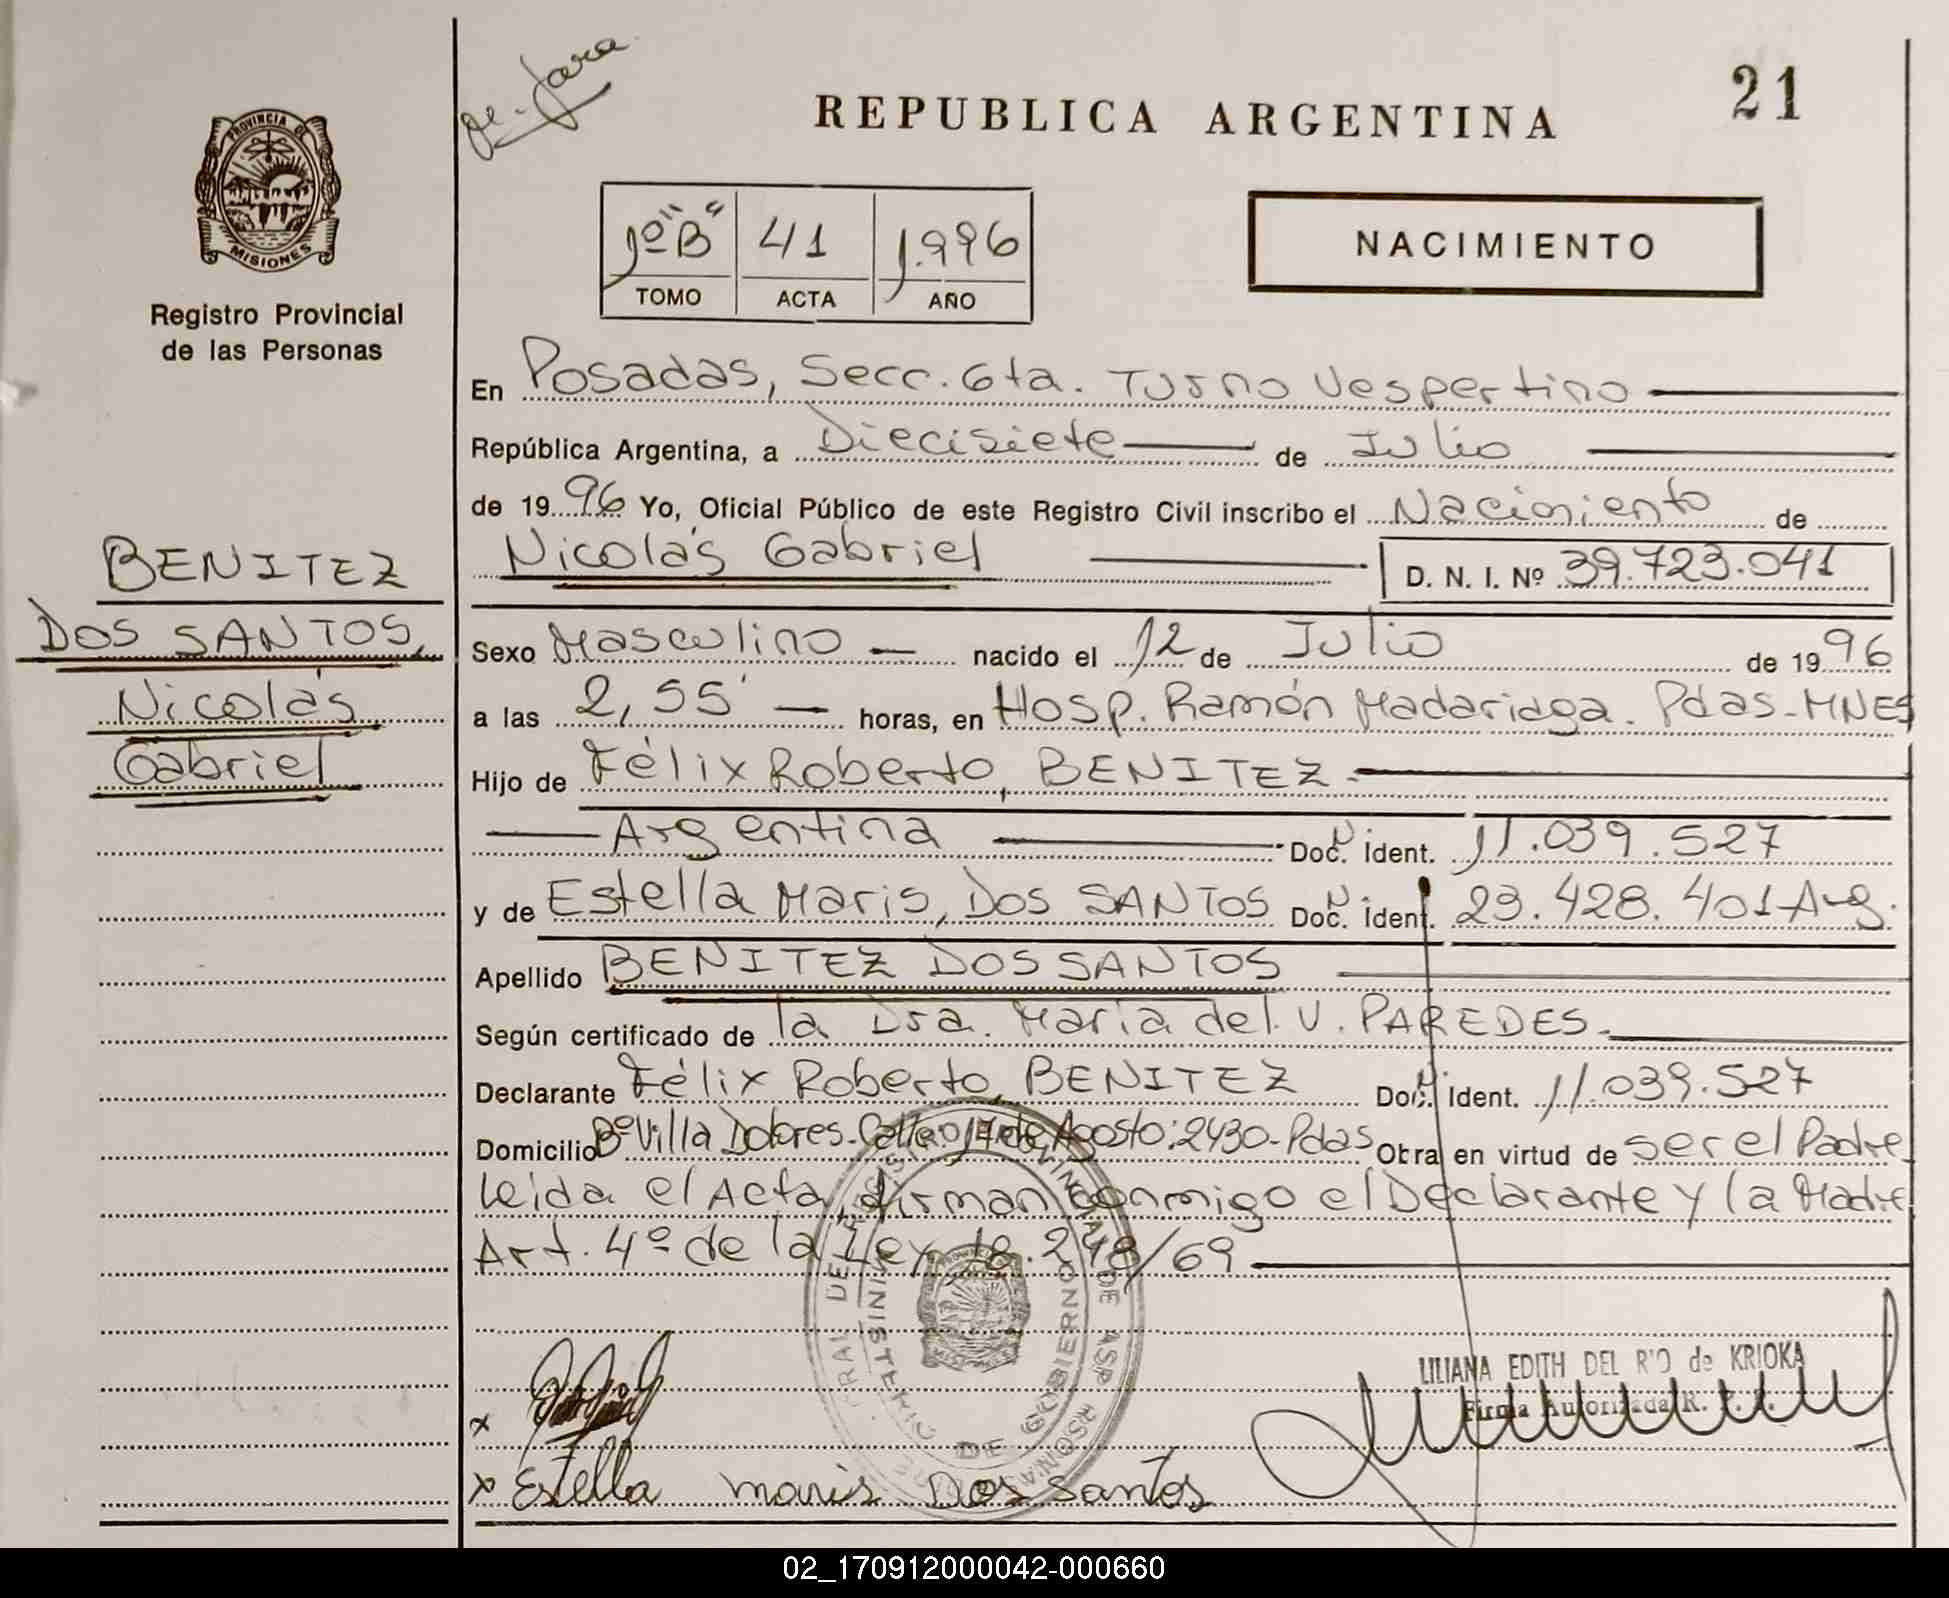 REPUBLICA ARGENTINA
21
PROVINCIA DE
MISIONES
Registro Provincial
de las Personas
1º "B" 41 1.996
TOMO ACTA AÑO
NACIMIENTO
En Posadas, Secc. 6ta. Turno Vespertino
República Argentina, a Diecisiete de Julio
de 1996 Yo, Oficial Público de este Registro Civil inscribo el Nacimiento de
Nicolás Gabriel D. N. I. Nº 39.723.041
BENITEZ
DOS SANTOS,
Nicolás
Gabriel
Sexo Masculino nacido el 12 de Julio de 1996
a las 2,55' horas, en Hosp. Ramón Madariaga. Pdas-MNES
Hijo de Félix Roberto, BENITEZ
Argentina Doc. Ident. 11.039.527
y de Estella Maris, DOS SANTOS Doc. Ident. 23.428.401 Arg.
Apellido BENITEZ DOS SANTOS
Según certificado de la Dra. María del V. PAREDES.
Declarante Félix Roberto, BENITEZ Doc. Ident. 11.039.527
Domicilio Bº Villa Dolores-Calle 17 de Agosto: 2430-Pdas Obra en virtud de ser el Padre
Leida el Acta firman conmigo el Declarante y la Madre
Art. 4º de la Ley 18.248/69
LILIANA EDITH DEL RIO de KRIOKA
Firma Autorizada R. P. P.
x
x Estella maris Dos Santos
MINISTERIO DE GOBIERNO
02_170912000042-000660